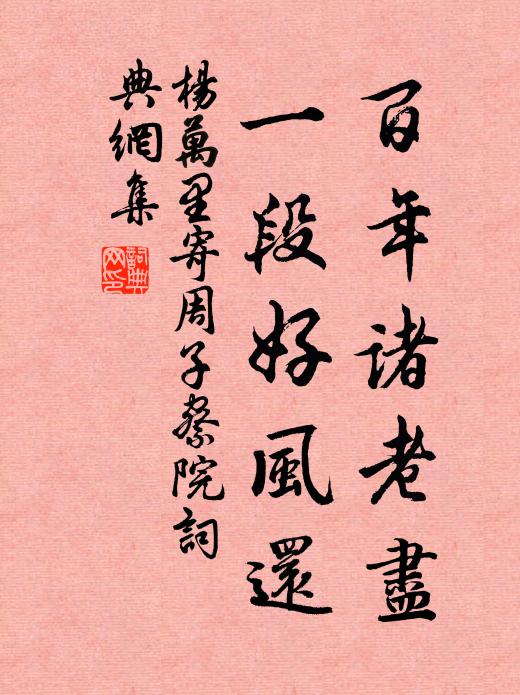 百年諸老盡
一段好風還
楊萬里寄周子察院詞
典網集
詞典
网印